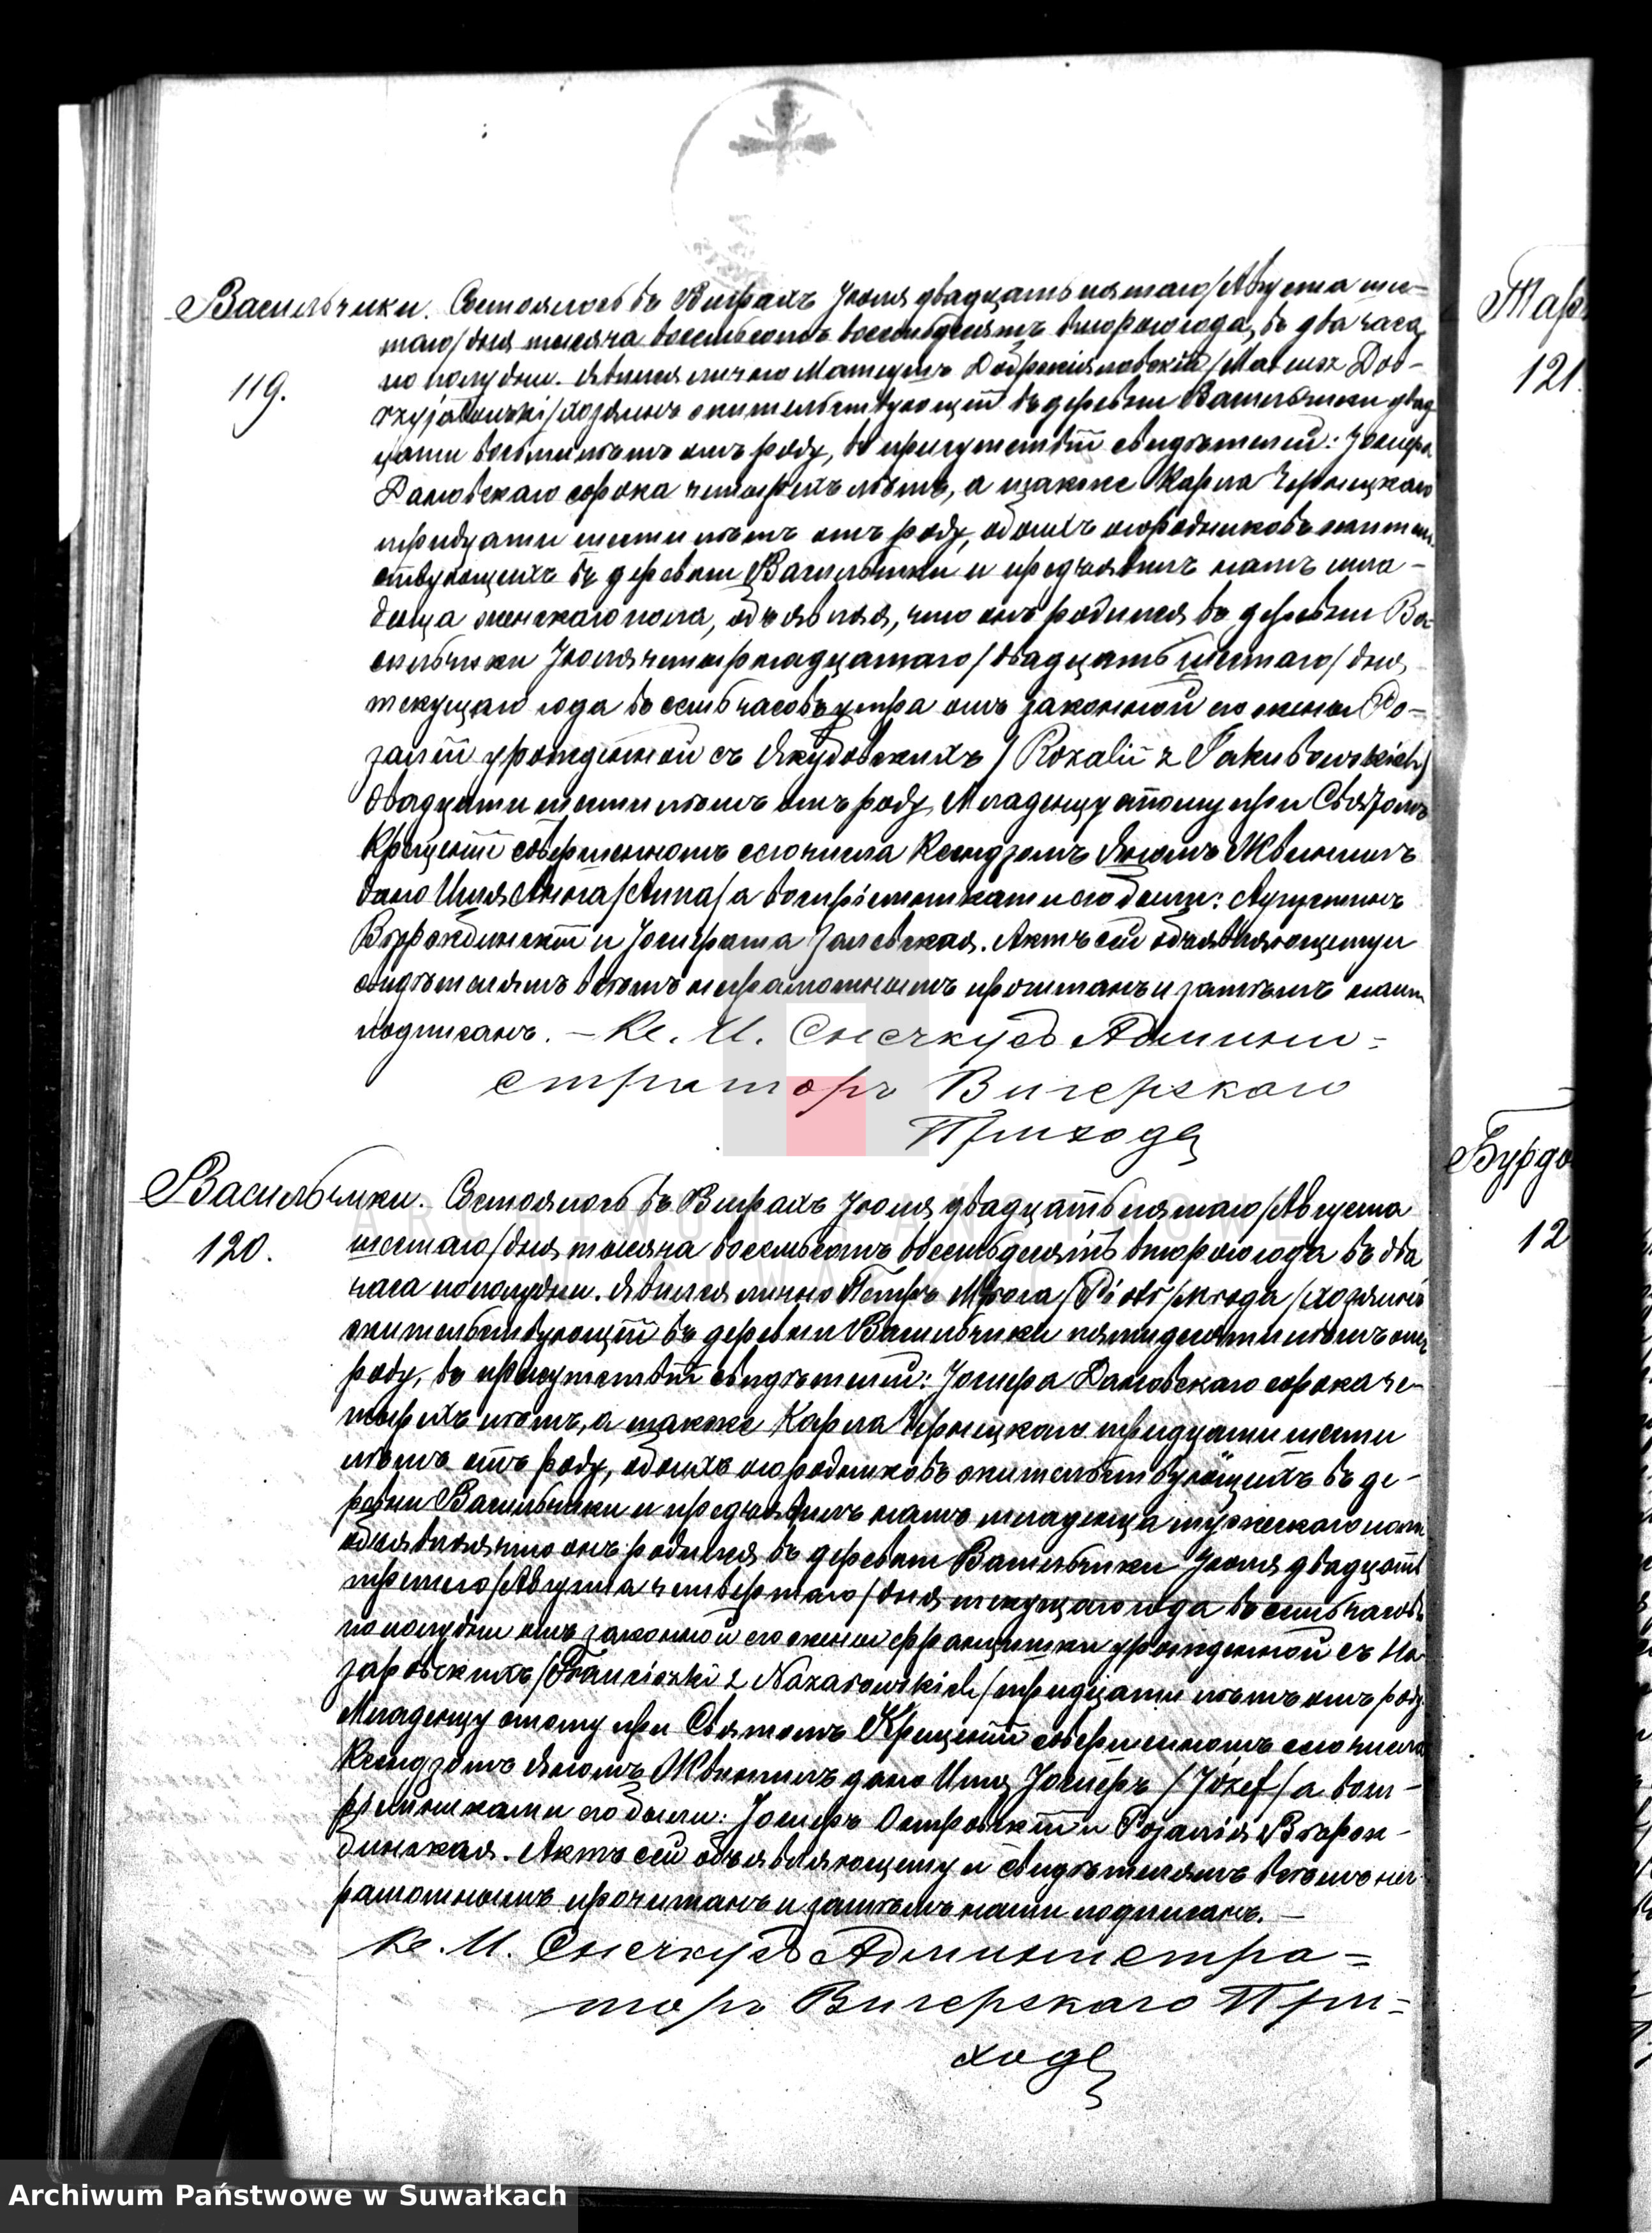 Васильчики. Состоялось въ Виграхъ Іюля двадцать пятаго /Августа шес-
119.
таго/ дня тысяча восемьсотъ восемьдесятъ второго года, въ два часа
по полудни. Явился лично Матеушъ /Mateusz Dob-
rzyjałowski/ хозяинъ жительствующій въ деревни Васильчики двад
цати восьми лѣтъ отъ роду, въ присутствіи свидѣтелей: Іосифа
сорока четырехъ лѣтъ, а также Карла Чернецкаго
тридцати шести лѣтъ отъ роду, обоихъ огородниковъ жительс
ствующихъ въ деревни Васильчики и предъявилъ намъ мла-
денца женскаго пола, объявляя, что онъ родился въ деревни Ва-
сильчики Іюля четырнадцатаго /двадцать шестаго/ дня
текущаго года въ семь часовъ утра отъ законной его жены Ро-
заліи урожденной съ Якубовскихъ /Rozalii z Jakubowskich/
двадцати шести лѣтъ отъ роду. Младенцу этому при Святомъ
Крещеніи совершенномъ сего числа Ксендзомъ Яномъ
дано Имя Анна /Anna/ а воспріемниками его были: Августинъ
и Іозефата Залевская. Актъ сей объявляющему и
свидѣтелямъ всѣмъ неграмотнымъ прочитанъ и затѣмъ нами
подписанъ. – Кс. И. Снечкусъ Админи-
страторъ Вигерскаго
Прихода
Васильчики. Состоялось въ Виграхъ Іюля двадцать пятаго /Августа
120.
шестаго/ дня тысяча восемьсотъ восемьдесятъ второго года въ два
часа пополудни. Явился лично Петръ Мрога /Piotr Mroga/ хозяинъ
жительствующій въ деревни Васильчики пятидесяти лѣтъ отъ
роду, въ присутствіи свидѣтелей: Іосифа сорока че-
тырехъ лѣтъ, а также Карла Чернецкаго тридцати шести
лѣтъ отъ роду, обоихъ огородниковъ жительствующихъ въ де-
ревни Васильчики и предъявилъ намъ младенца мужескаго пола
объявляя что онъ родился въ деревни Васильчики Іюля двадцать
третьего /Августа четвертаго/ дня текущаго года въ семь часовъ
по полудни отъ законной его жены Францишки урожденной съ На-
заровскихъ /Franciszki z Nazarowskich/ тридцати лѣтъ отъ роду.
Младенцу этому при Святомъ Крещеніи совершенномъ сего числа
Ксендзомъ Яномъ дано Имя Іосифъ /Józef/ а восп-
ріемниками его были: Іосифъ Островскій и Розалія
Актъ сей объявляющему и свидѣтелямъ всѣмъ нег-
рамотнымъ прочитанъ и затѣмъ нами подписанъ. –
Кс. И. Снечкусъ Администра-
торъ Вигерскаго При-
хода
Тар
121.
Бурдо
12
ARCHIWUM PAŃSTWOWE
W SUWAŁKACH
Archiwum Państwowe w Suwałkach